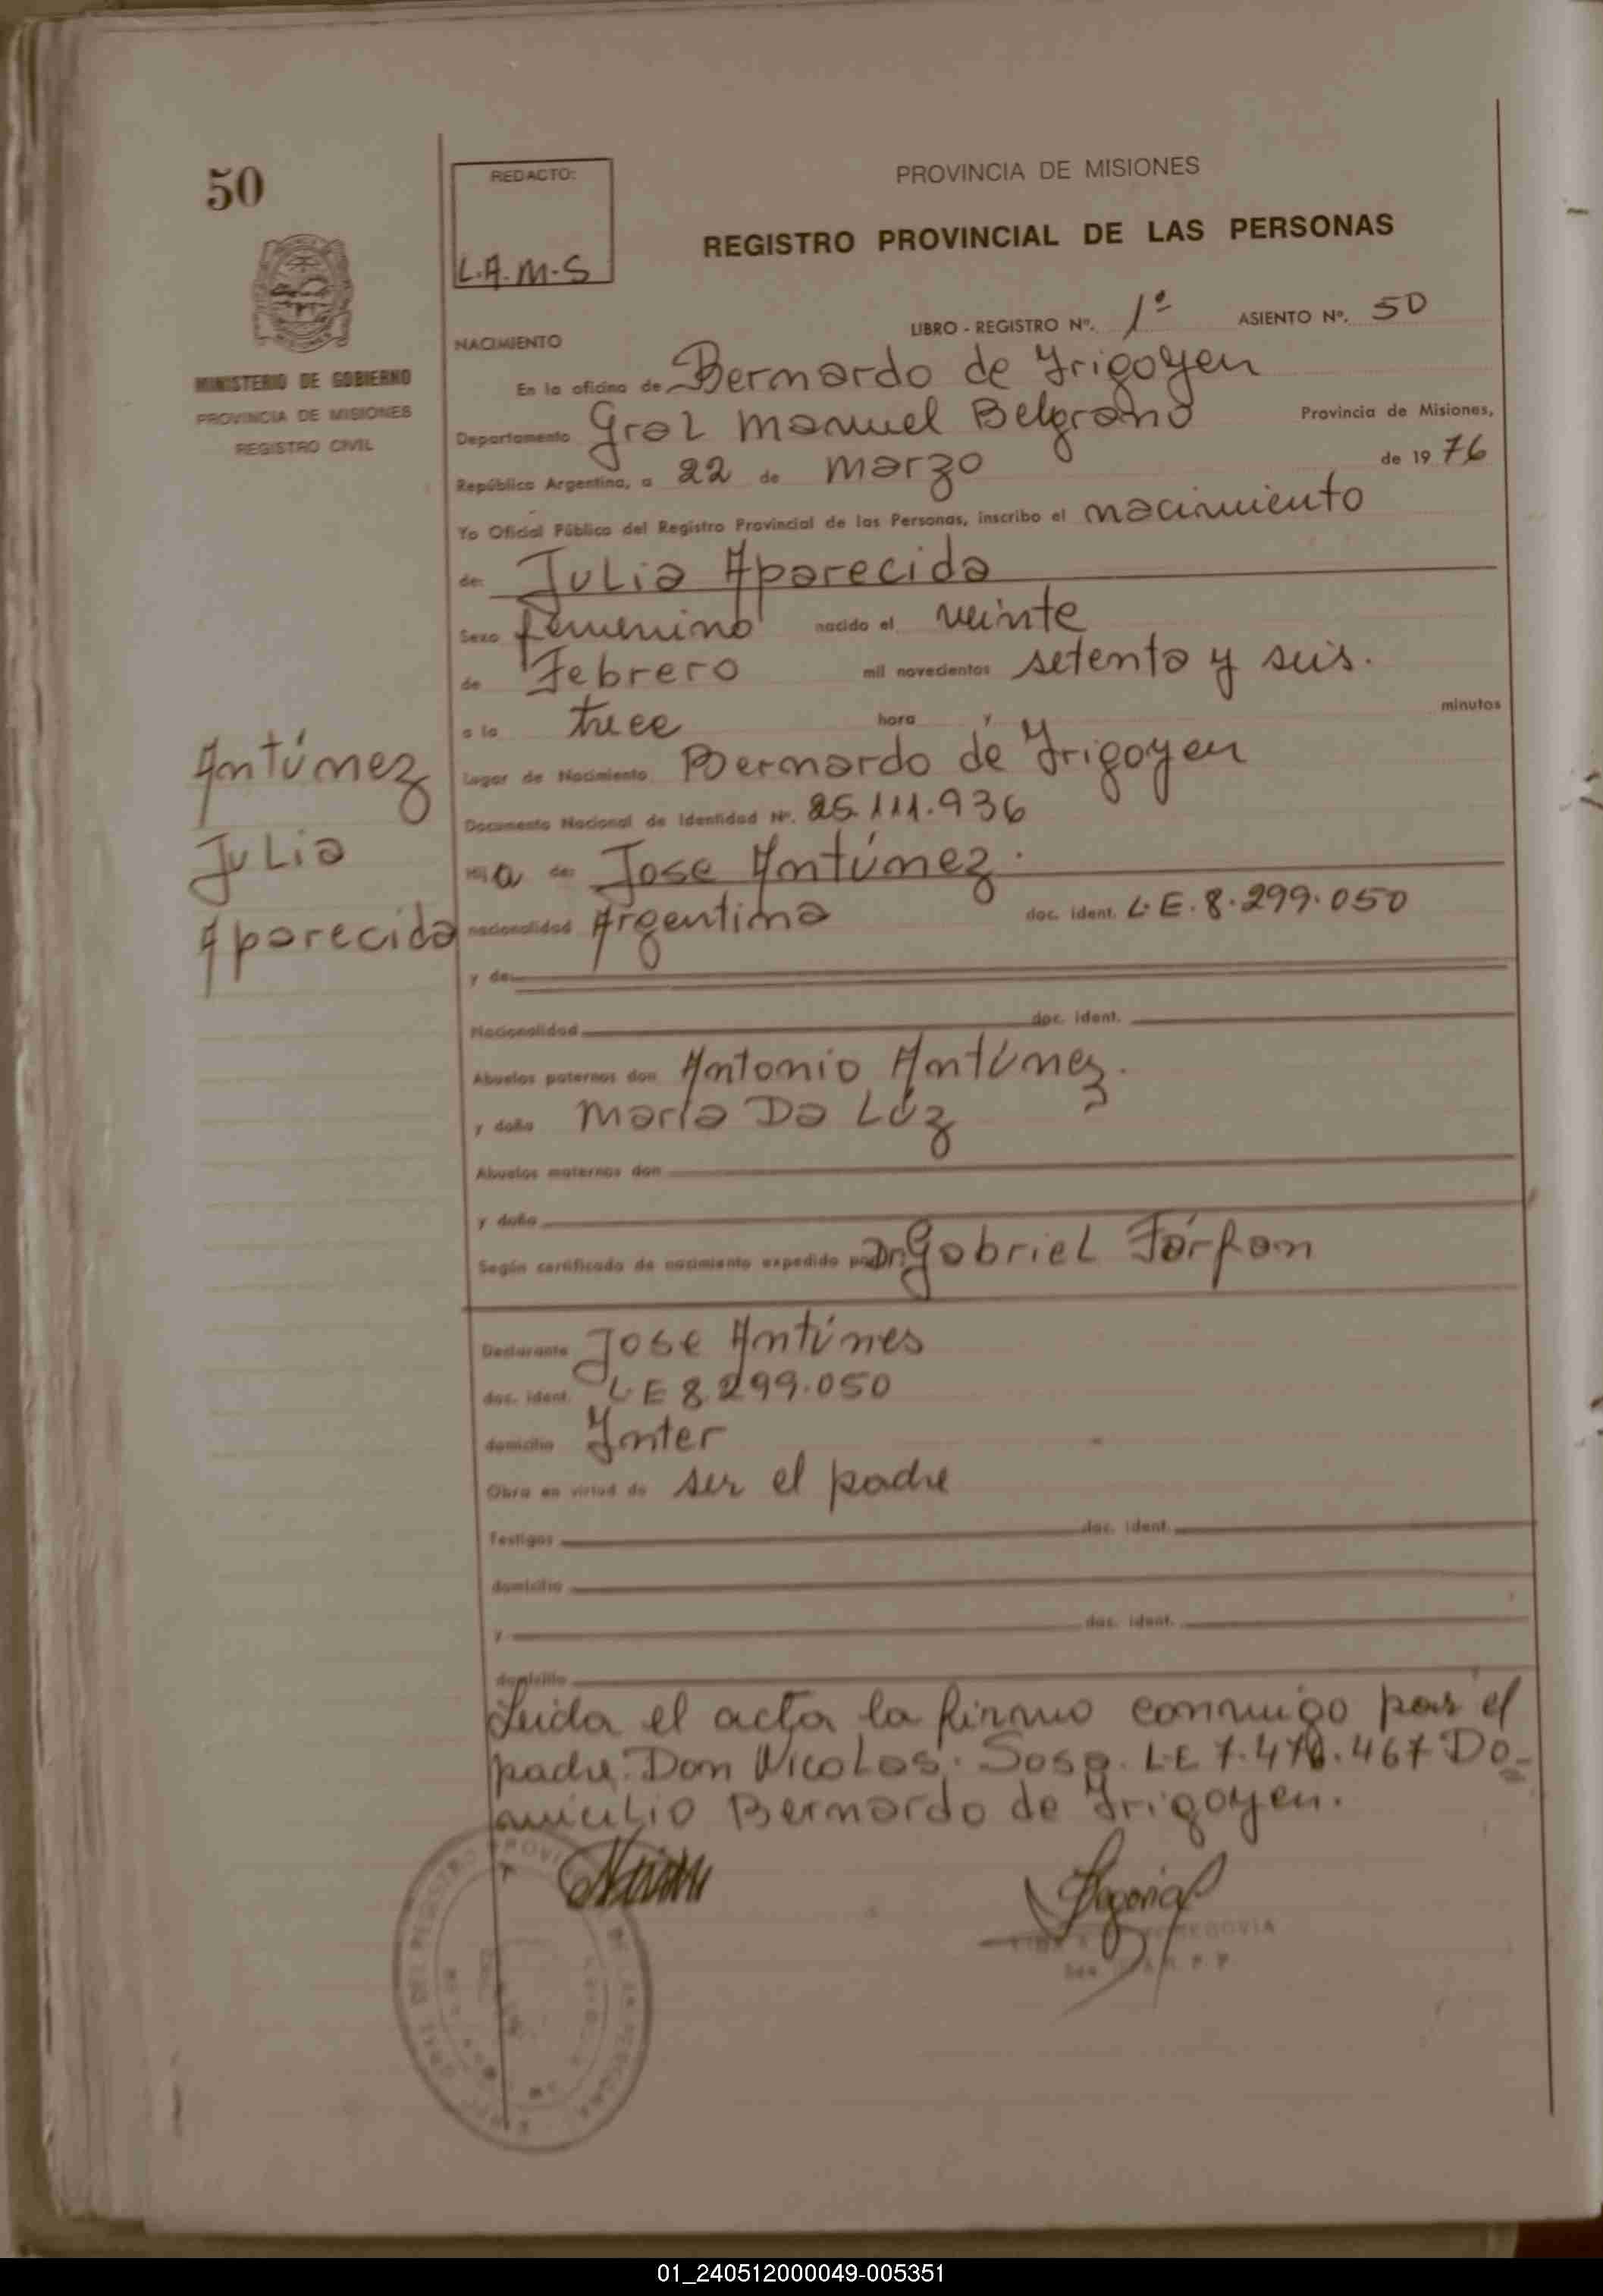 50
REDACTO:
L.A.M-S
PROVINCIA DE MISIONES
REGISTRO PROVINCIAL DE LAS PERSONAS
LIBRO - REGISTRO Nº. 1º ASIENTO Nº. 50
MINISTERIO DE GOBIERNO
PROVINCIA DE MISIONES
REGISTRO CIVIL
NACIMIENTO
En la oficina de Bernardo de Yrigoyen
Departamento Gral Manuel Belgrano Provincia de Misiones,
República Argentina, a 22 de Marzo de 19 76
Yo Oficial Público del Registro Provincial de las Personas, inscribo el nacimiento
de: Julia Aparecida
Sexo femenino nacido el veinte
de Febrero mil novecientos setenta y seis.
a la trece hora y minutos
Lugar de Nacimiento Bernardo de Yrigoyen
Documento Nacional de Identidad Nº. 25.111.936
Antúnez
Julia
Aparecida
Hij a de: Jose Antúnez.
nacionalidad Argentina doc. ident. L.E. 8.299.050
y de:
Nacionalidad doc. ident.
Abuelos paternos don Antonio Antúnez.
y doña María Da Lúz
Abuelos maternos don
y doña
Según certificado de nacimiento expedido por Dr. Gabriel Fárfan
Declarante Jose Antúnes
doc. ident. L E 8.299.050
domicilio Ynter
Obra en virtud de ser el padre
Testigos doc. ident.
domicilio
y doc. ident.
domicilio
Leida el acta la firmo conmigo por el
padre. Don Nicolas. Sosa. L.E 7.478.467 Do-
micilio Bernardo de Yrigoyen.
SEGOVIA
01_240512000049-005351